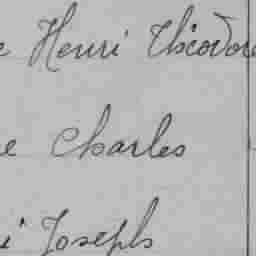 e Henri Théodore
e Charles
i Joseph